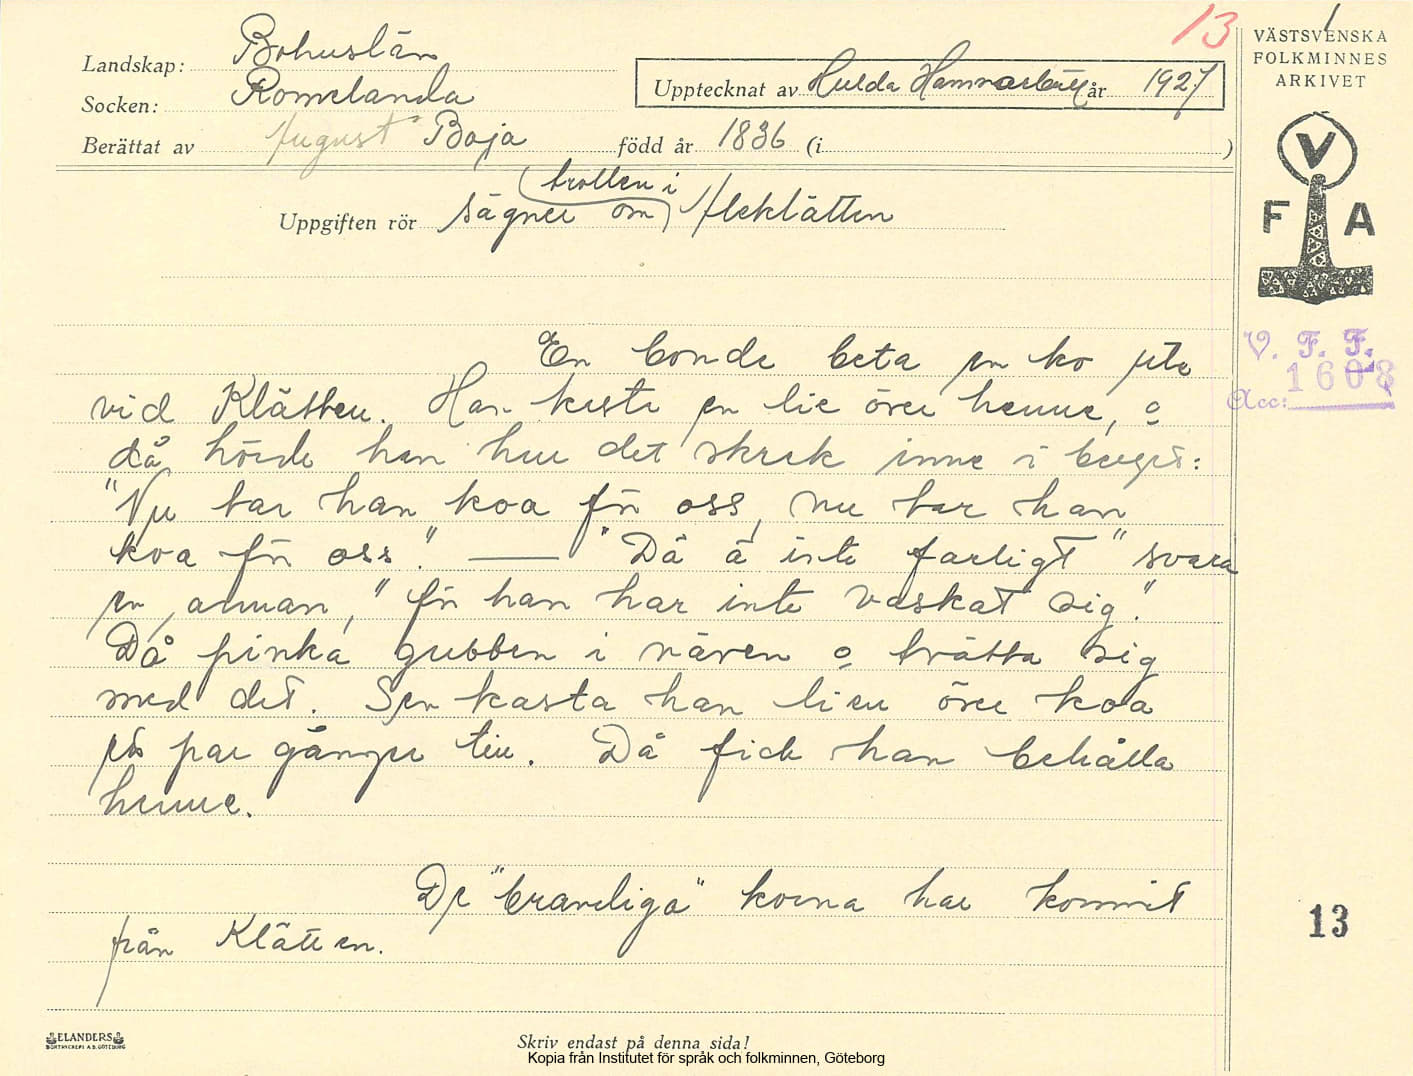 13
Landskap: Bohuslän
Socken: Romelanda
Berättat av August Boja född år 1836 (i )
Upptecknat av Hulda Hammarbäck år 1927
VÄSTSVENSKA
FOLKMINNES
ARKIVET
V
F A
Uppgiften rör sägner om trollen i Aleklätten
V. F. F.
1608
Acc:
En bonde beta en ko ute
vid Klätten. Han kaste en lie över henne, o
då hörde han hur det skrek inne i berget:
"Nu tar han koa för oss, nu tar han
koa för oss." — "Dä ä inte farligt" svara
en annan, "för han har inte vaskat sig."
Då pinka gubben i näven o tvätta sig
med det. Sen kasta han lien över koa
ett par gånger till. Då fick han behålla
henne.
De "brandiga" korna har kommit
från Klätten.
13
ELANDERS
BOKTRYCKERI A.B. GÖTEBORG
Skriv endast på denna sida!
Kopia från Institutet för språk och folkminnen, Göteborg